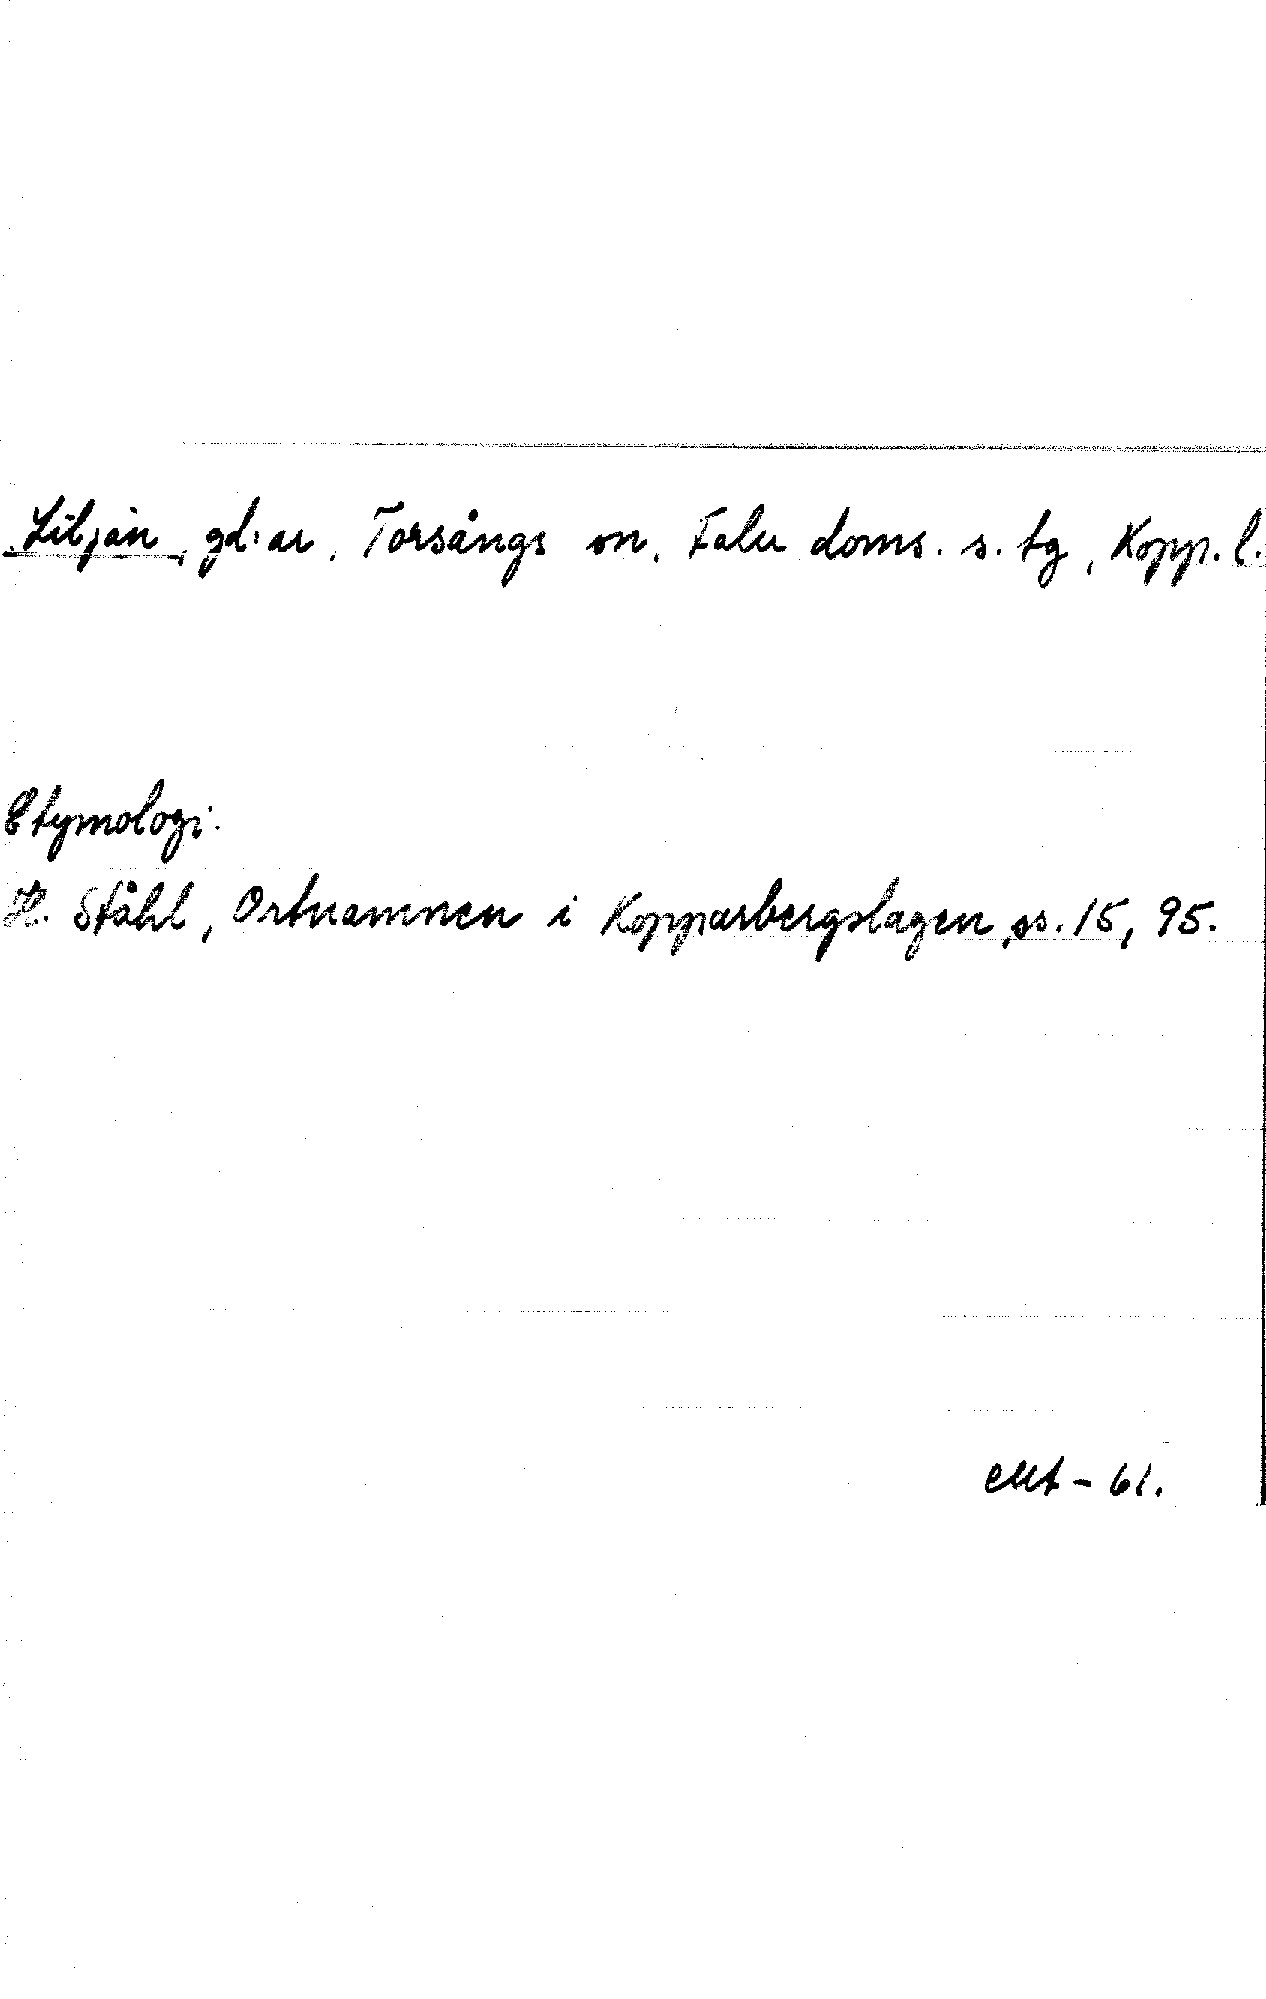 Liljan, gd:ar, Torsångs sn, Falu doms. s. tg, Kopp. l.
Etymologi.
H. Ståhl, Ortnamnen i Kopparbergslagen, ss. 15, 95.
- 61.